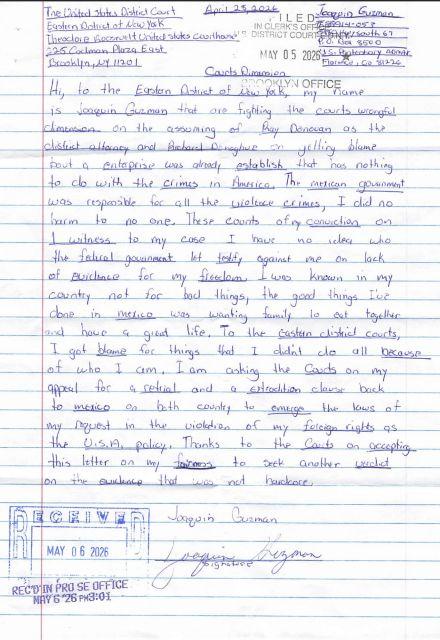 The United States District Court
Eastern District of New York
Theodore Roosevelt United states courthouse
225 Cadman Plaza East
Brooklyn, NY 11201
April 25, 2026
FILED
IN CLERK'S OFFICE
U.S. DISTRICT COURT
MAY 05 2026
BROOKLYN OFFICE
Joaquin Guzman
P.O. Box 8500
Florence, Co 81226
Courts Dimension
Hi, to the Eastern District of New York, my name
is Joaquin Guzman that are fighting the courts wrongful
dimension on the assuming of Ray Donovan as the
district attorney and Richard Donoghue on yelling blame
bout a enterprise was already establish that has nothing
to do with the crimes in America. The mexican government
was responsible for all the violence crimes, I did no
harm to no one. These counts of my conviction on
1 witness to my case I have no idea who
the federal government let testify against me on lack
of evidence for my freedom. I was known in my
country not for bad things, the good things I've
done in mexico was wanting family to eat together
and have a great life. To the Eastern district courts,
I got blame for things that I didn't do all because
of who I am. I am asking the Courts on my
appeal for a retrial and a extradition clause back
to mexico on both country to emerge the laws of
my request in the violation of my foreign rights as
the U.S.A. policy. Thanks to the Courts on accepting
this letter on my to seek another verdict
on the evidence that was not hardcore.
Joaquin Guzman
Joaquin Guzman
Signature
RECEIVED
MAY 06 2026
REC'D IN PRO SE OFFICE
MAY 6 '26 PM3:01